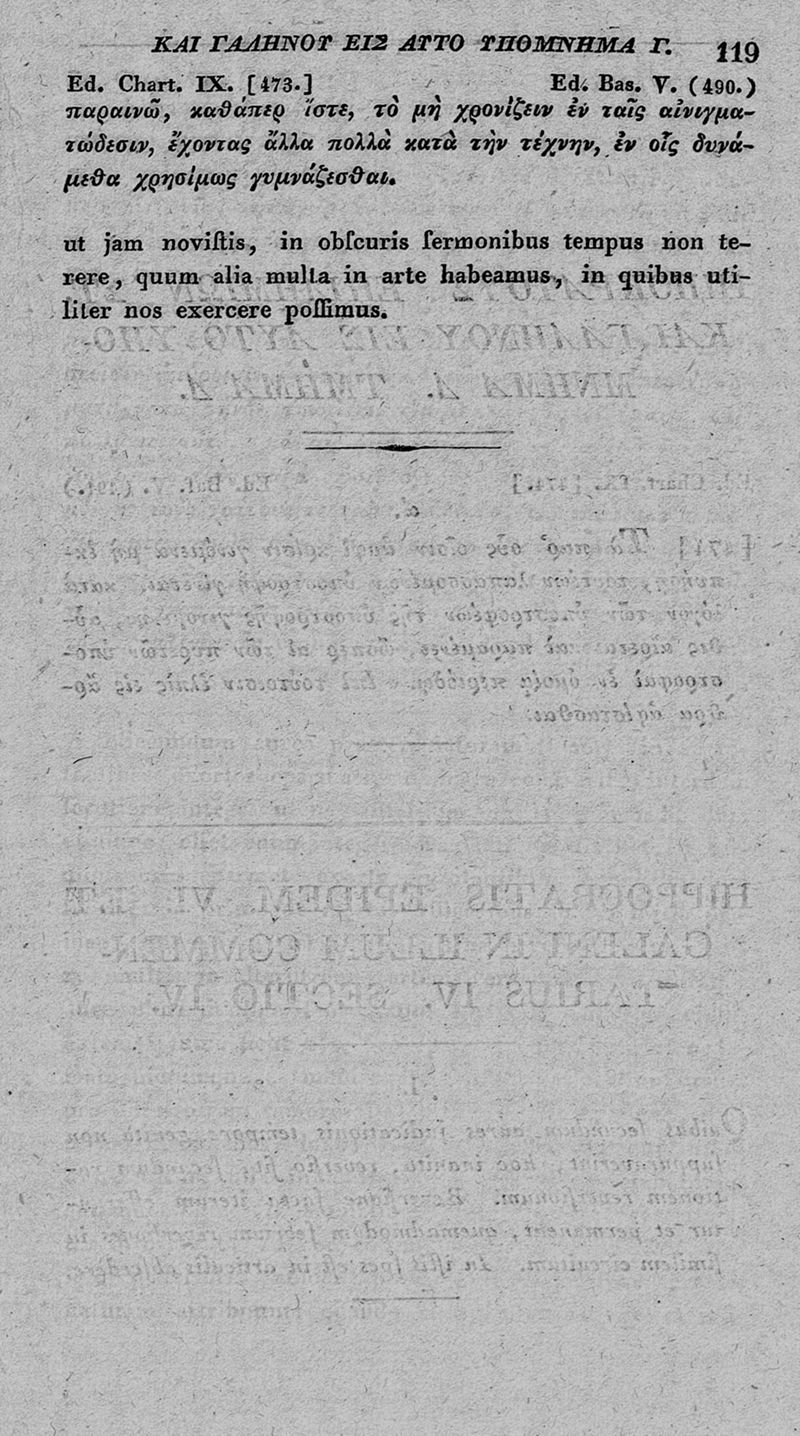 ΚΑΙ ΓΑΛΗΝΟΥ ΕΙΣ ΑΥΤΟ ΥΠΟΜΝΗΜΑ Γ. 119
Ed. Chart. IX. [473.] Ed. Bas. V. (490.)
παραινῶ, καθάπερ ἴστε, τὸ μὴ χρονίζειν ἐν ταῖς αἰνιγμα-
τώδεσιν, ἔχοντας ἄλλα πολλὰ κατὰ τὴν τέχνην, ἐν οἷς δυνά-
μεθα χρησίμως γυμνάζεσθαι.
ut jam noviſtis, in obſcuris ſermonibus tempus non te-
rere, quum alia multa in arte habeamus, in quibus uti-
liter nos exercere poſſimus.